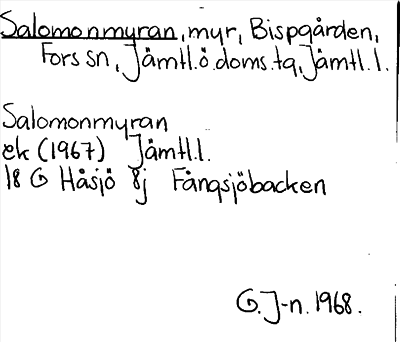 Salomonmyran, myr, Bispgården,
Fors sn, Jämtl.ö.doms.tg, Jämtl.l.
Salomonmyran
ek (1967) Jämtl.l.
18 G Håsjö 8j Fångsjöbacken
G. J-n. 1968.